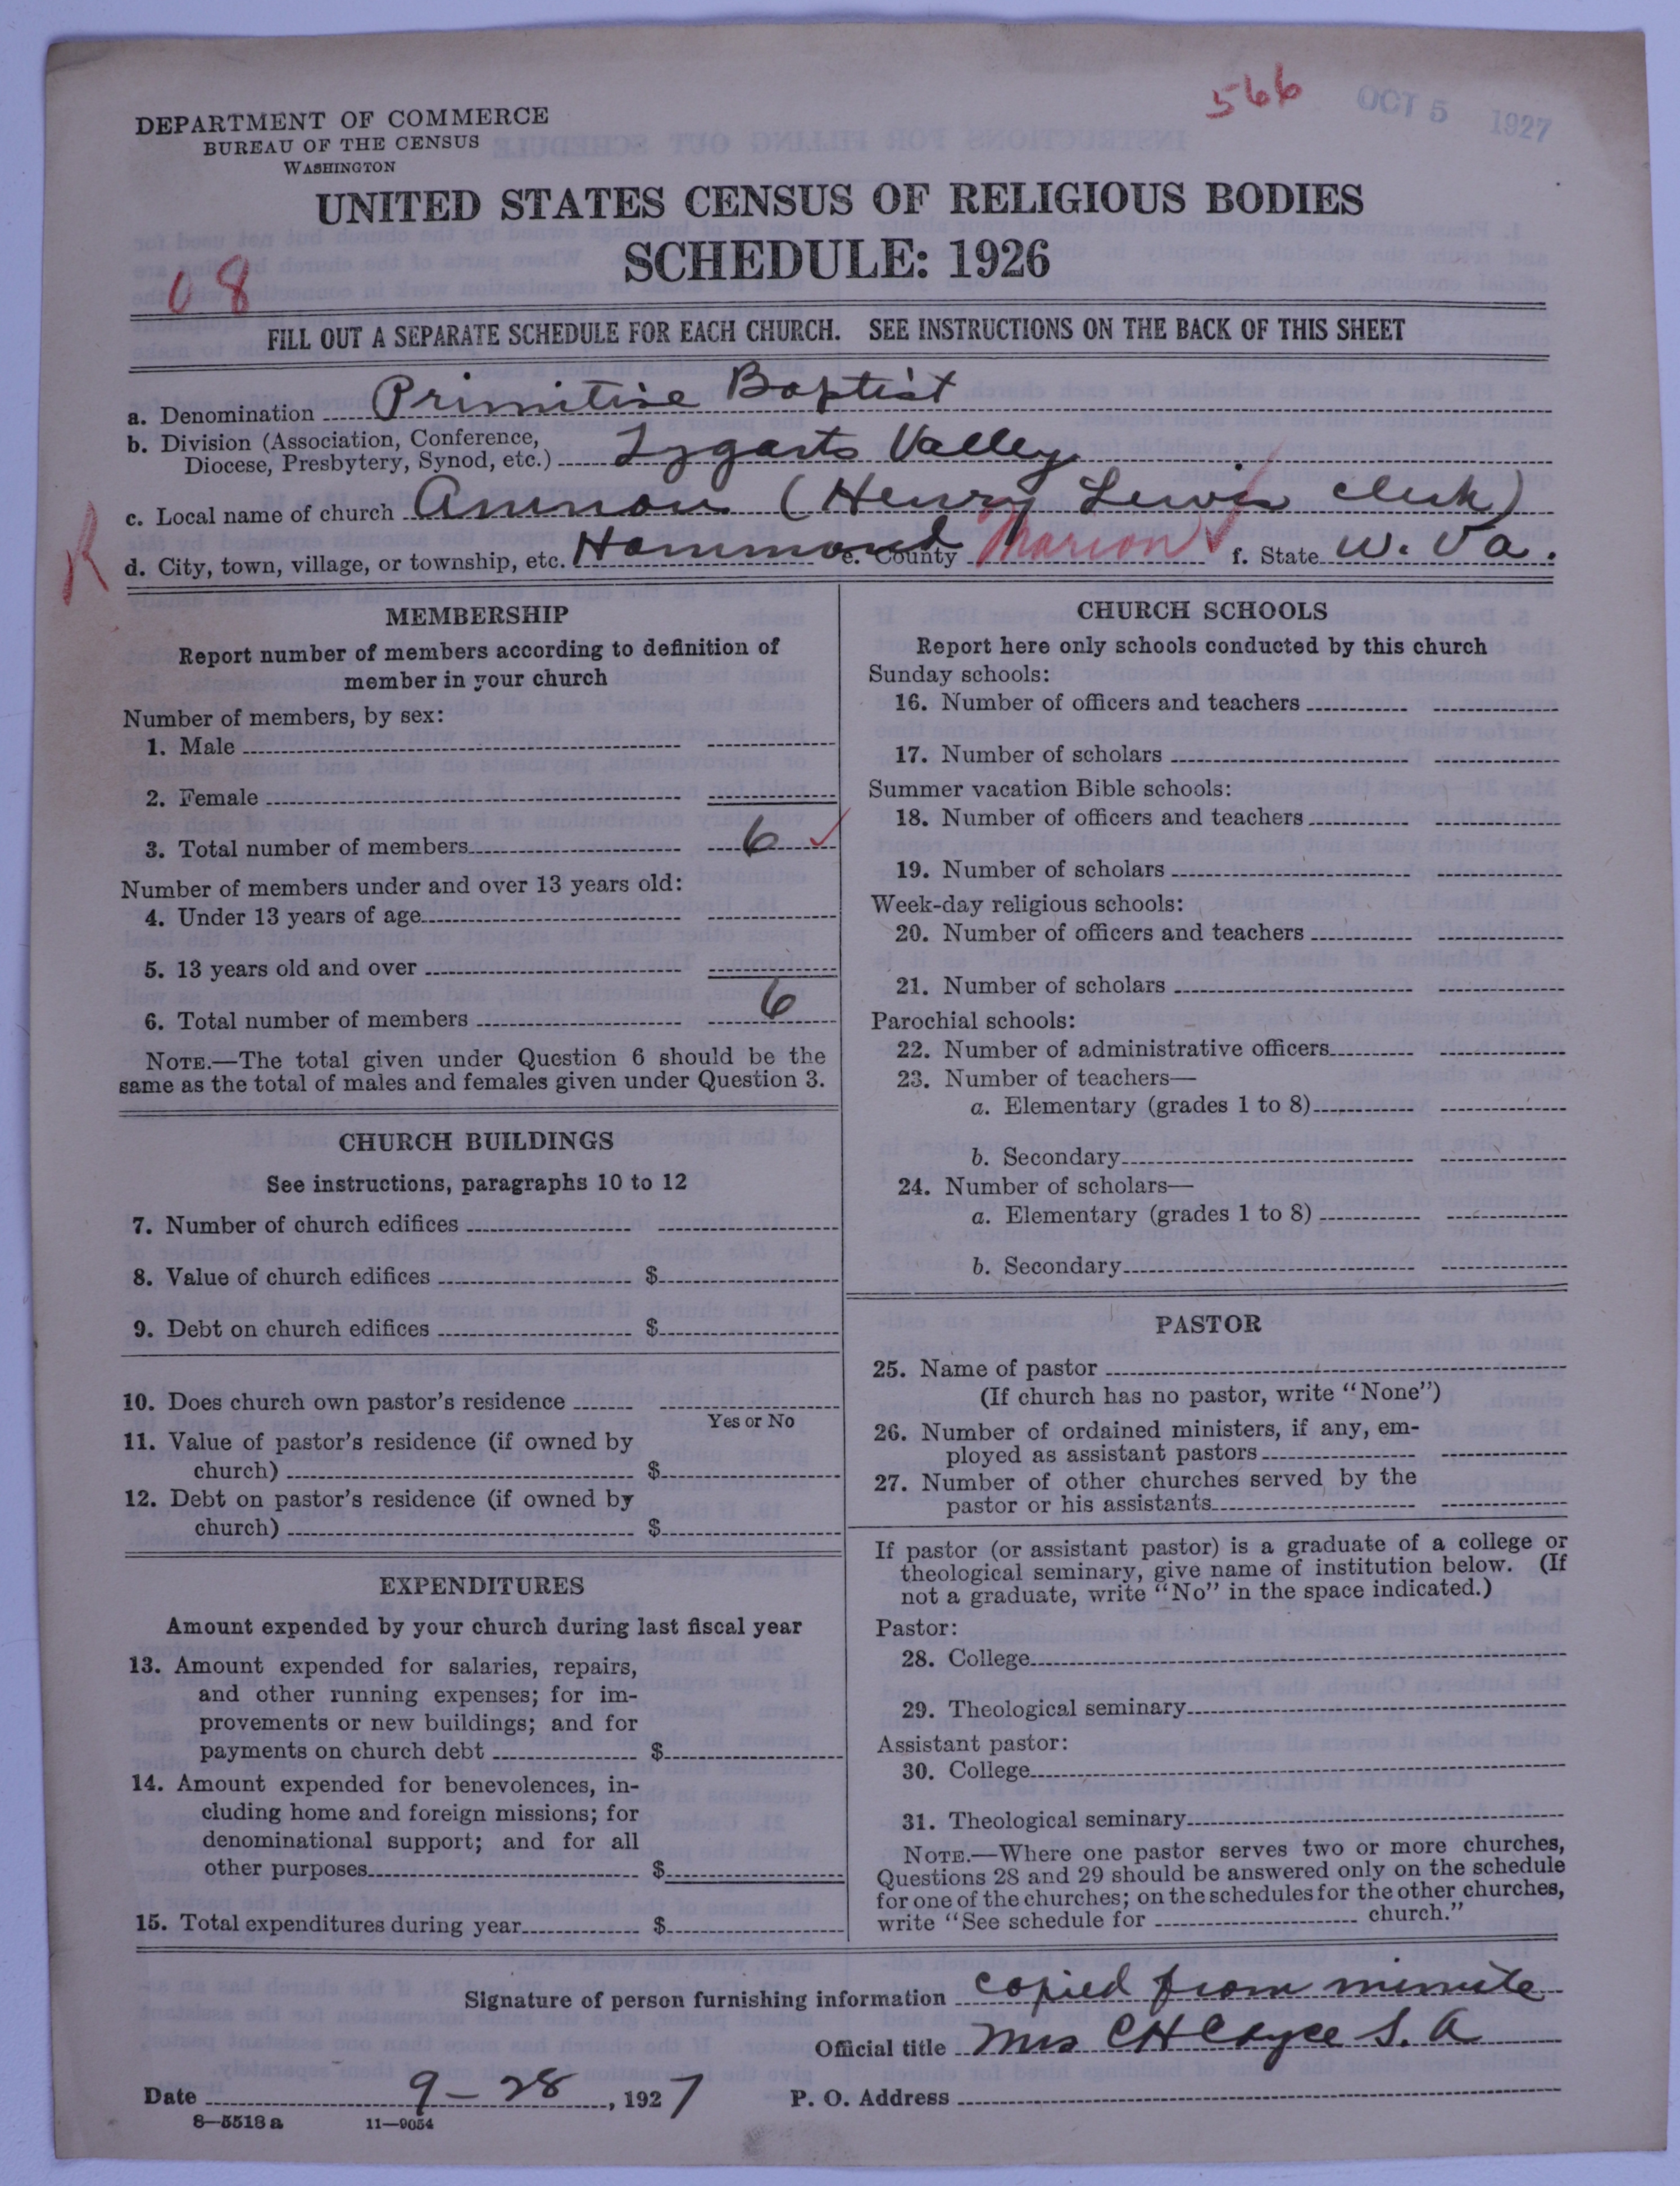 566
OCT 5 1927
DEPARTMENT OF COMMERCE
BUREAU OF THE CENSUS
WASHINGTON
UNITED STATES CENSUS OF RELIGIOUS BODIES
SCHEDULE: 1926
08
FILL OUT A SEPARATE SCHEDULE FOR EACH CHURCH. SEE INSTRUCTIONS ON THE BACK OF THIS SHEET
a. Denomination Primitive Baptist
b. Division (Association, Conference,
Diocese, Presbytery, Synod, etc.) Tygarts Valley
c. Local name of church (Henry Lewis clerk)
R
d. City, town, village, or township, etc. Hammond e. County Marion f. State W. Va.
MEMBERSHIP
Report number of members according to definition of
member in your church
Number of members, by sex:
1. Male
2. Female
3. Total number of members 6 ✓
Number of members under and over 13 years old:
4. Under 13 years of age
5. 13 years old and over
6. Total number of members 6
NOTE.—The total given under Question 6 should be the
same as the total of males and females given under Question 3.
CHURCH BUILDINGS
See instructions, paragraphs 10 to 12
7. Number of church edifices
8. Value of church edifices $
9. Debt on church edifices $
10. Does church own pastor's residence
Yes or No
11. Value of pastor's residence (if owned by
church) $
12. Debt on pastor's residence (if owned by
church) $
EXPENDITURES
Amount expended by your church during last fiscal year
13. Amount expended for salaries, repairs,
and other running expenses; for im-
provements or new buildings; and for
payments on church debt $
14. Amount expended for benevolences, in-
cluding home and foreign missions; for
denominational support; and for all
other purposes $
15. Total expenditures during year $
CHURCH SCHOOLS
Report here only schools conducted by this church
Sunday schools:
16. Number of officers and teachers
17. Number of scholars
Summer vacation Bible schools:
18. Number of officers and teachers
19. Number of scholars
Week-day religious schools:
20. Number of officers and teachers
21. Number of scholars
Parochial schools:
22. Number of administrative officers
23. Number of teachers—
a. Elementary (grades 1 to 8)
b. Secondary
24. Number of scholars—
a. Elementary (grades 1 to 8)
b. Secondary
PASTOR
25. Name of pastor
(If church has no pastor, write "None")
26. Number of ordained ministers, if any, em-
ployed as assistant pastors
27. Number of other churches served by the
pastor or his assistants
If pastor (or assistant pastor) is a graduate of a college or
theological seminary, give name of institution below. (If
not a graduate, write "No" in the space indicated.)
Pastor:
28. College
29. Theological seminary
Assistant pastor:
30. College
31. Theological seminary
NOTE.—Where one pastor serves two or more churches,
Questions 28 and 29 should be answered only on the schedule
for one of the churches; on the schedules for the other churches,
write "See schedule for church."
Signature of person furnishing information copied from minute
Official title Mrs C H Cayce S. A
Date 9-28, 1927 P. O. Address
8—5518 a 11—9054